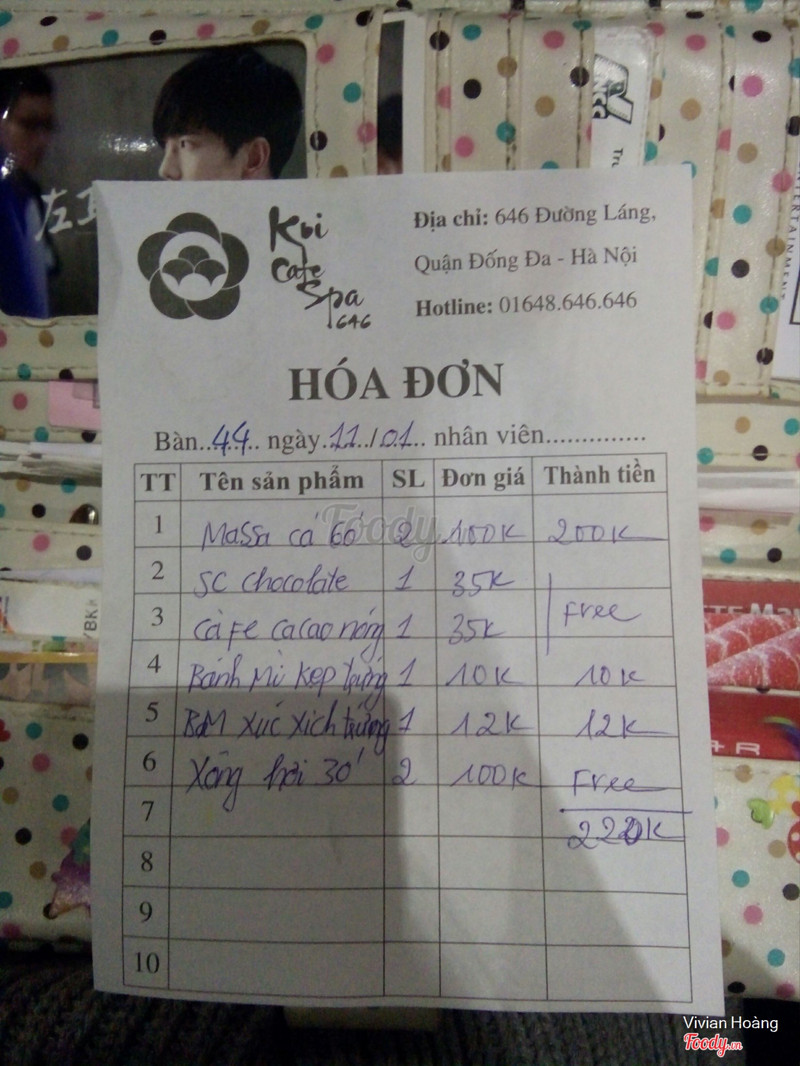 左
NCG
Koi
Cafe
Spa
646
Địa chỉ: 646 Đường Láng,
Quận Đống Đa - Hà Nội
Hotline: 01648.646.646
HÓA ĐƠN
Bàn..44.. ngày.11../.01.. nhân viên..............
TT Tên sản phẩm SL Đơn giá Thành tiền
1 Massa cá 60' 2 100K 200K
2 SC chocolate 1 35K
Free
3 Cafe cacao nóng 1 35K
4 Bánh Mì kẹp trứng 1 10K 10K
5 BM xúc xích trứng 1 12K 12K
6 Xông hơi 30' 2 100K Free
7 220K
8
9
10
Foody.vn
Vivian Hoàng
Foody.vn